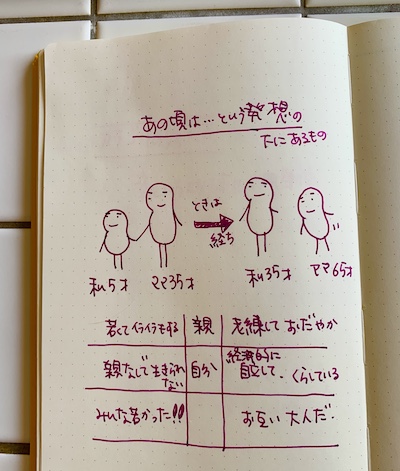 あの頃は…という発想の
下にあるもの
ときは
経ち
私5才 ママ35才
私35才 ママ65才
若くてイライラもする 親 老練して おだやか
親なしで生きられない 自分 経済的に自立して、くらしている
みんな若かった!! お互い大人だ.